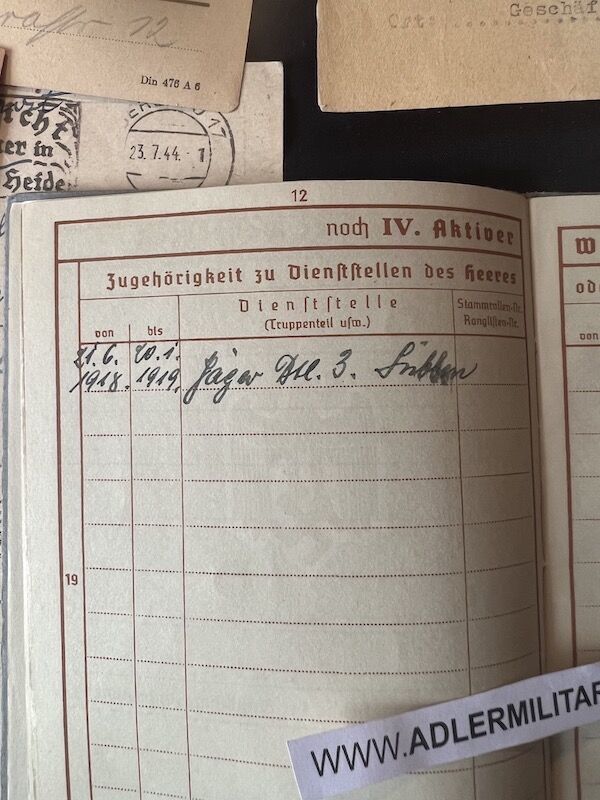 12
Din 476 A 6
Geschäf
Ort:
23.7.44.-1
er in
Heide
12
noch IV. Aktiver
Zugehörigkeit zu Dienststellen des Heeres
von
bis
Dienststelle
(Truppenteil usw.)
Stammrollen-Nr.
Ranglisten-Nr.
21.6. 20.1.
1918. 1919. Jäger Btl. 3. Lübben
19
W
od
von
WWW.ADLERMILITAR